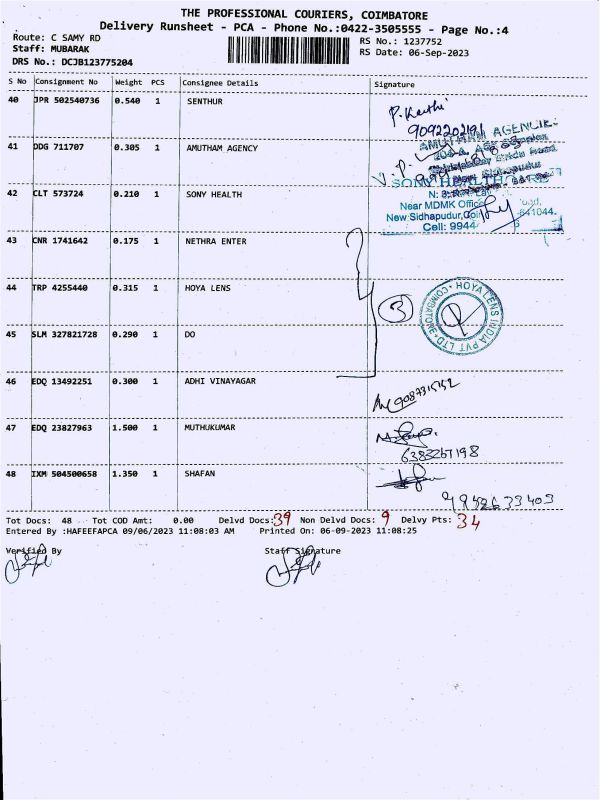 THE PROFESSIONAL COURIERS, COIMBATORE
Delivery Runsheet - PCA - Phone No.:0422-3505555 - Page No.:4
Route: C SAMY RD
RS No.: 1237752
Staff: MUBARAK
RS Date: 06-Sep-2023
DRS No.: DCJB123775204
S No Consignment No Weight PCS Consignee Details Signature
40 JPR 502540736 0.540 1 SENTHUR
9092202191
41 DDG 711707 0.305 1 AMUTHAM AGENCY
AMUTHAM AGENCIE
42 CLT 573724 0.210 1 SONY HEALTH
SONY HEALTH CARE
Near MDMK Office
New Sidhapudur, Coi 641044.
Cell: 9944
43 CNR 1741642 0.175 1 NETHRA ENTER
44 TRP 4255440 0.315 1 HOYA LENS
3
HOYA LENS INDIA PVT LTD COIMBATORE
45 SLM 327821728 0.290 1 DO
46 EDQ 13492251 0.300 1 ADHI VINAYAGAR
47 EDQ 23827963 1.500 1 MUTHUKUMAR
6383267198
48 IXM 504500658 1.350 1 SHAFAN
Tot Docs: 48 Tot COD Amt: 0.00 Delvd Docs: 39 Non Delvd Docs: 9 Delvy Pts: 34
Entered By :HAFEEFAPCA 09/06/2023 11:08:03 AM Printed On: 06-09-2023 11:08:25
Verified By Staff Signature